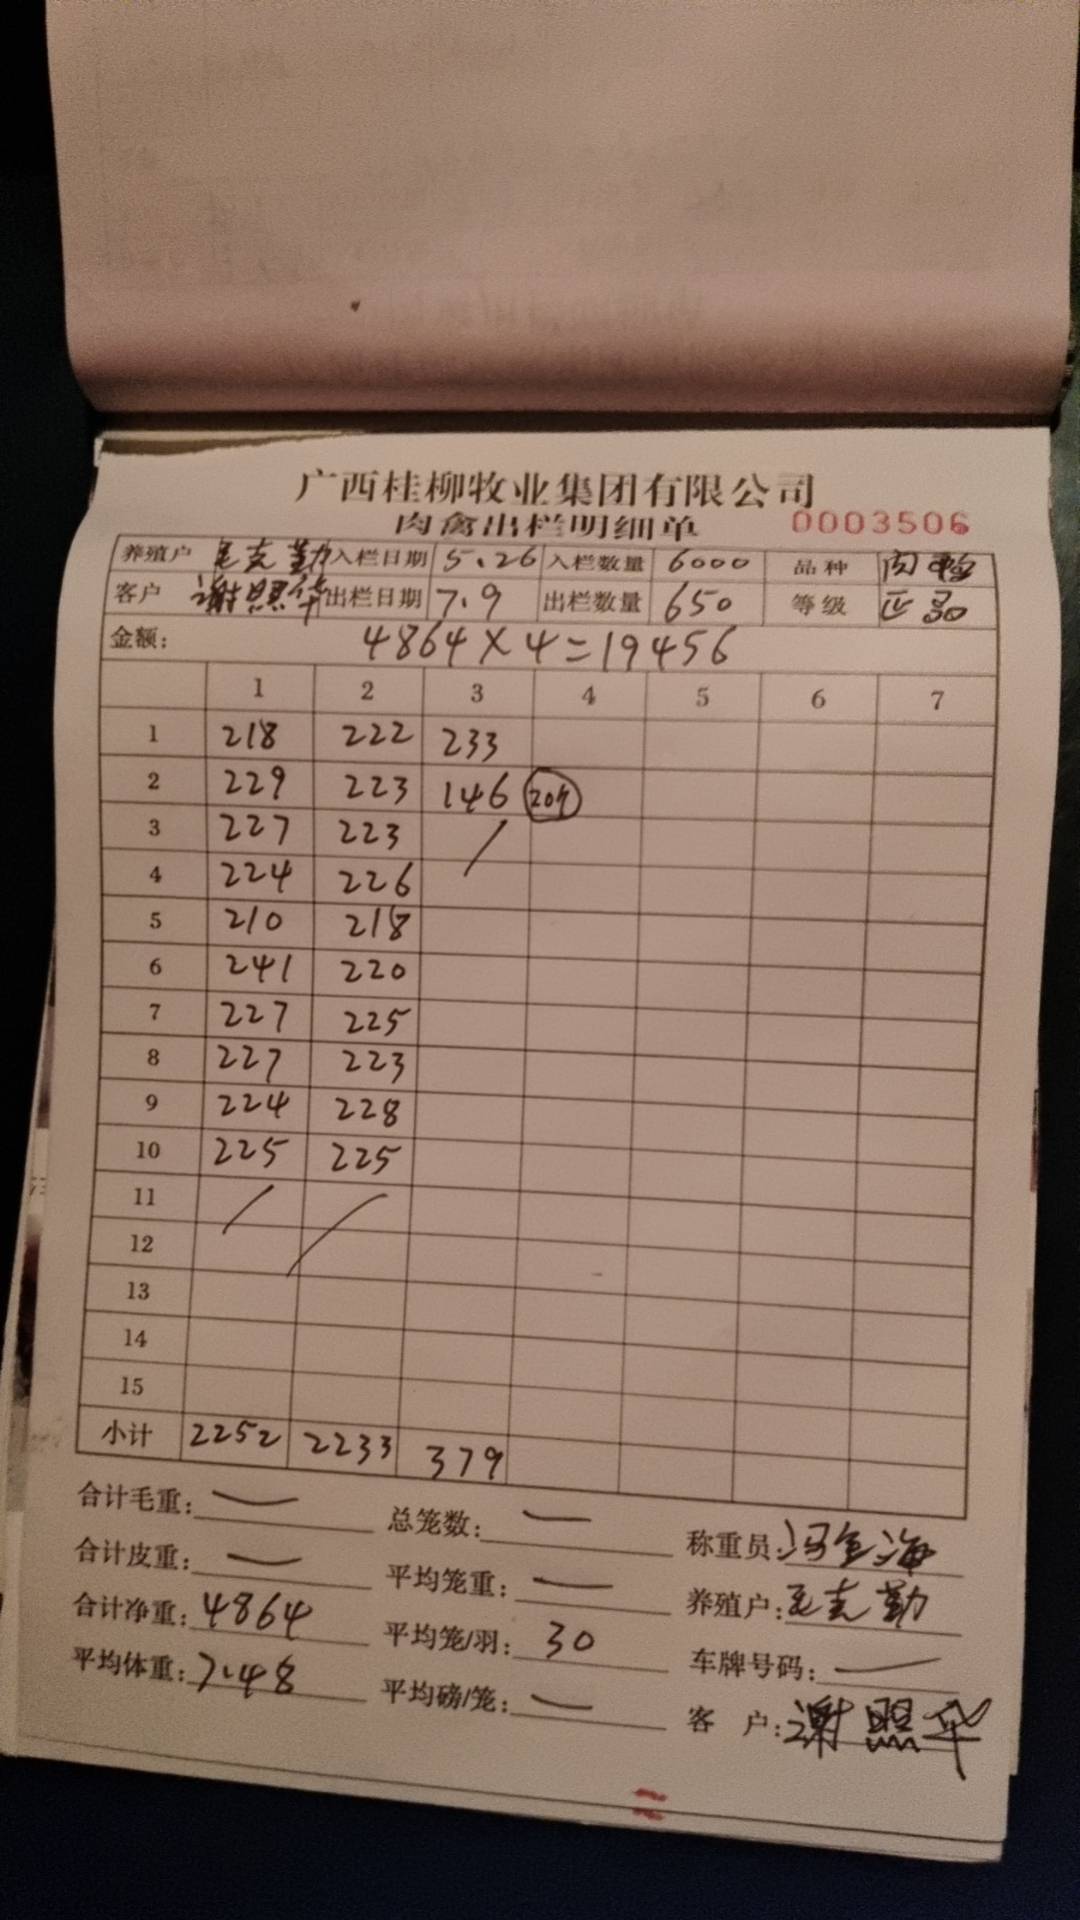 广西桂柳牧业集团有限公司
肉禽出栏明细单 0003506
养殖户 克勤 入栏日期 5.26 入栏数量 6000 品种 肉鸭
客户 谢照华 出栏日期 7.9 出栏数量 650 等级
金额: 4864×4=19456
1 2 3 4 5 6 7
1 218 222 233
2 229 223 146
3 227 223
4 224 226
5 210 218
6 241 220
7 227 225
8 227 223
9 224 228
10 225 225
11
12
13
14
15
小计 2252 2233 379
合计毛重: 总笼数: 称重员: 冯金海
合计皮重: 平均笼重: 养殖户: 克勤
合计净重: 4864 平均笼/羽: 30 车牌号码:
平均体重: 7.48 平均磅/笼: 客 户: 谢照华